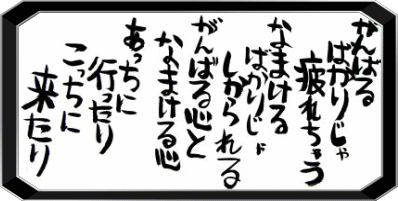 がんばる
ばかりじゃ
疲れちゃう
なまける
ばかりじゃ
しかられる
がんばる心と
なまける心
あっちに
行ったり
こっちに
来たり